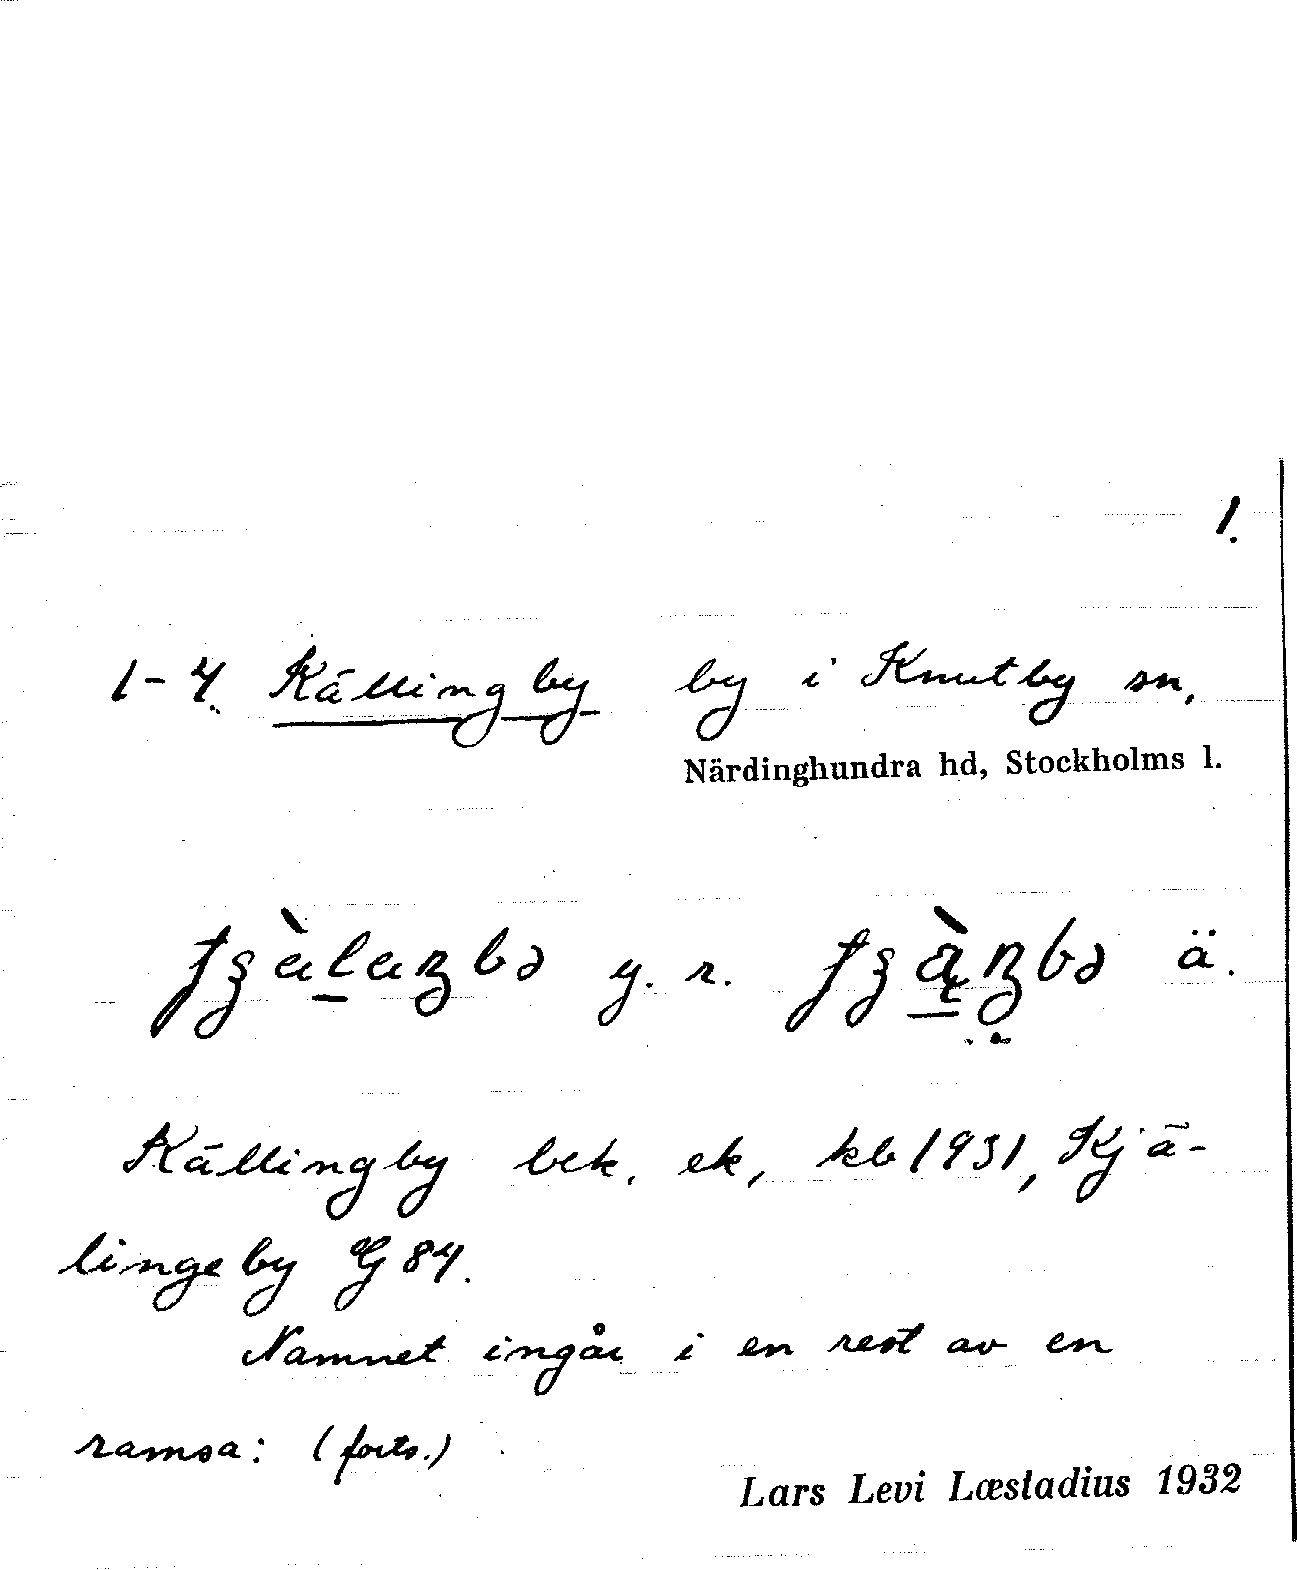 1.
1-4. Källingby by i Knutby sn,
Närdinghundra hd, Stockholms l.
y. r. ä.
Källingby bek. ek, kb 1931, Kjä-
lingeby G 84.
Namnet ingår i en rest av en
ramsa: (forts.)
Lars Levi Læstadius 1932